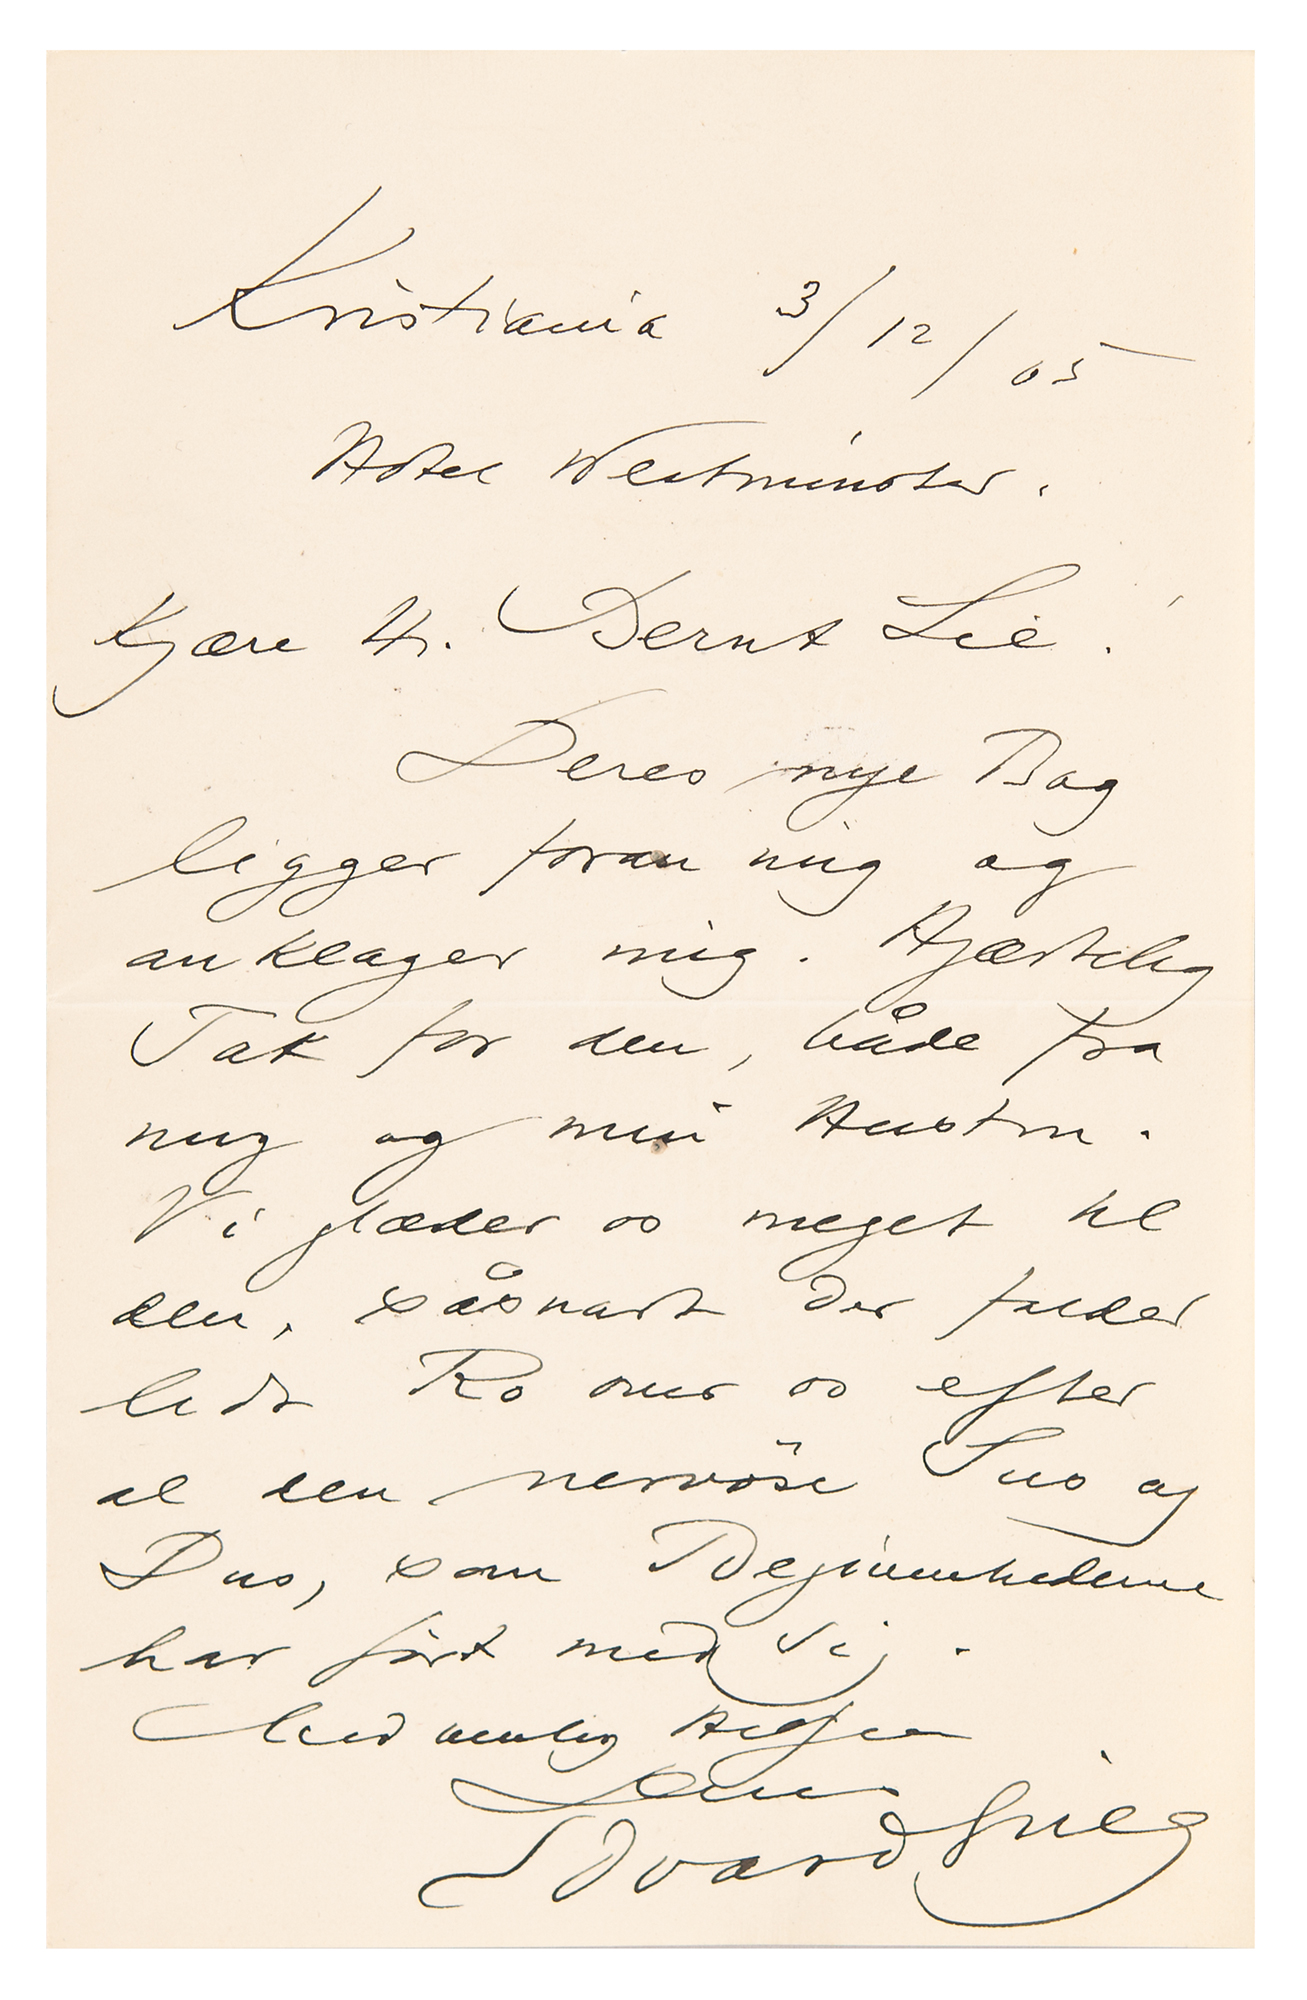 Kristiania 3/12/05
Hôtel Westminster.
Kjære Hr. Bernt Lie!
Deres nye Bog
ligger foran mig og
anklager mig. Hjærtelig
Tak for den, både fra
mig og min Hustru.
Vi glæder os meget til
den, såsnart der falder
lidt Ro over os efter
al den nervöse Sus og
Dus, som Begivenhederne
har fört med sig.
Med venlig Hilsen
Deres
Edvard Grieg